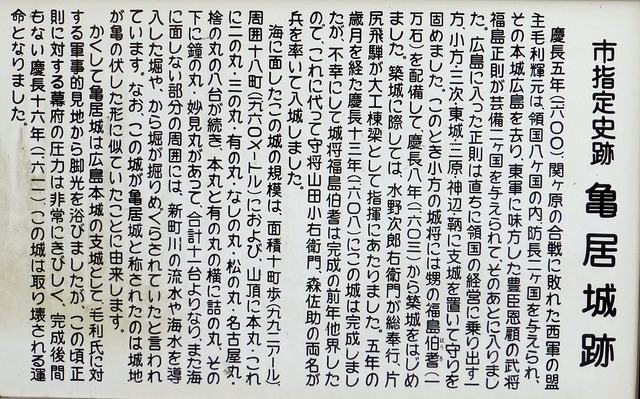 市指定史跡 亀居城跡
慶長五年(一六〇〇)、関ヶ原の合戦に敗れた西軍の盟
主毛利輝元は、領国八ヶ国の内、防長二ヶ国を与えられ、
その本城広島を去り、東軍に味方した豊臣恩顧の武将
福島正則が芸備二ヶ国を与えられて、そのあとに入りまし
た。広島に入った正則は直ちに領国の経営に乗り出す一
方、小方・三次・東城・三原・神辺・鞆に支城を置いて守りを
固めました。このとき小方の城将には甥の福島伯耆(一
万石)を配備して、慶長八年(一六〇三)から築城をはじめ
ました。築城に際しては、水野次郎右衛門が総奉行、片
尻飛騨が大工棟梁として指揮にあたりました。五年の
歳月を経た慶長十三年(一六〇八)にこの城は完成しまし
たが、不幸にして城将福島伯耆は完成の前年他界した
ので、これに代って守将山田小右衛門、森佐助の両名が
兵を率いて入城しました。
海に面したこの城の規模は、面積十町歩(九九二アール)、
周囲十八町(一九六〇メートル)におよび、山頂に本丸・これ
に二の丸・三の丸・有の丸・なしの丸・松の丸・名古屋丸・
捨の丸の八台が続き、本丸と有の丸の横に詰の丸、その
下に鐘の丸・妙見丸があって、合計十一台よりなり、また海
に面しない部分の周囲には、新町川の流水や海水を導
入した堀や、から堀が掘りめぐらされていたと言われ
ています。なお、この城が亀居城と称されたのは城地
が亀の伏した形に似ていたことに由来します。
かくして亀居城は広島本城の支城として、毛利氏に対
する軍事的見地から脚光を浴びましたが、この頃正
則に対する幕府の圧力は非常にきびしく、完成後間
もない慶長十六年(一六一一)、この城は取り壊される運
命となりました。